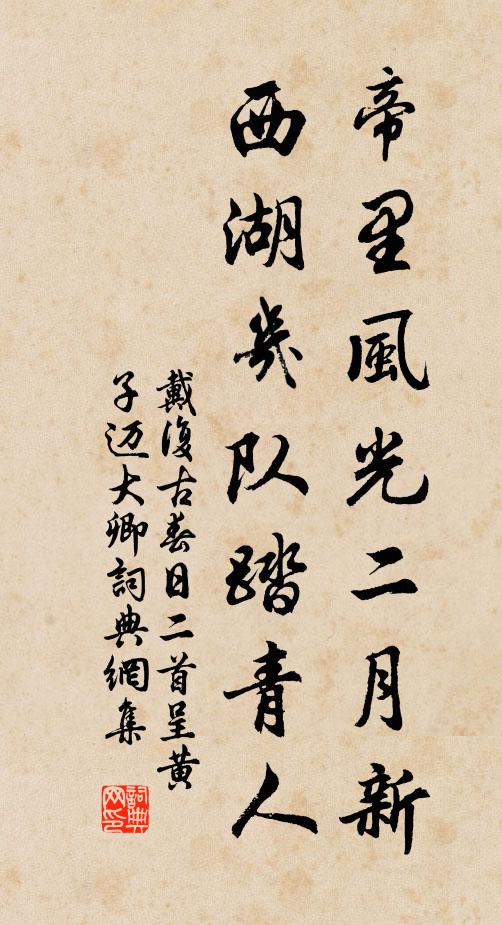 帝里風光二月新
西湖幾队踏青人
戴復古春日二首呈黄
子迈大卿詞典網集
詞典网印